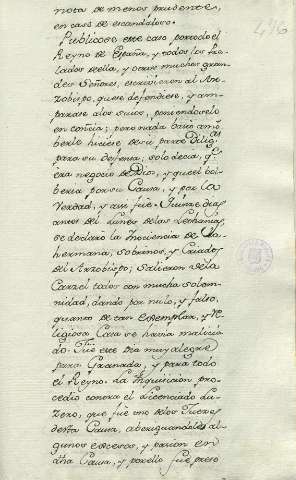 nota de menos prudente,
en caso de escandaloso.
Publicose este caso por todo el
Reyno de España, y todos los Pre-
lados de ella, y otros muchos gran-
des Señores, escrivieron al Ar-
zobispo, que se defendiese, y am-
parase a los suyos, poniendoselo
en conc.ia; pero nada bastó a mo-
berle hiciese de su parte Dilig.as
para su defensa, solo decia, q.e
era negocio de Dios, y que el bol-
beria por su Causa, y por la
Verdad, y asi fue. Quinze dias
antes del Lunes de las Letanias,
se declaró la Inocencia de la
hermana, sobrinos, y Criados
del Arzobispo; salieron de la
Carzel todos con mucha solem-
nidad, dando por nulo, y falso,
quanto de tan exemplar, y Re-
ligiosa Casa se havia malicia-
do. Fue este Dia muy alegre
para Granada, y para todo
el Reyno. La Inquisicion pro-
cedió contra el Licenciado Lu-
zero, que fue uno de los Jueces
desta Causa, aberiguandole al-
gunos excesos, y pasion en
dha Causa, y por ello fue preso